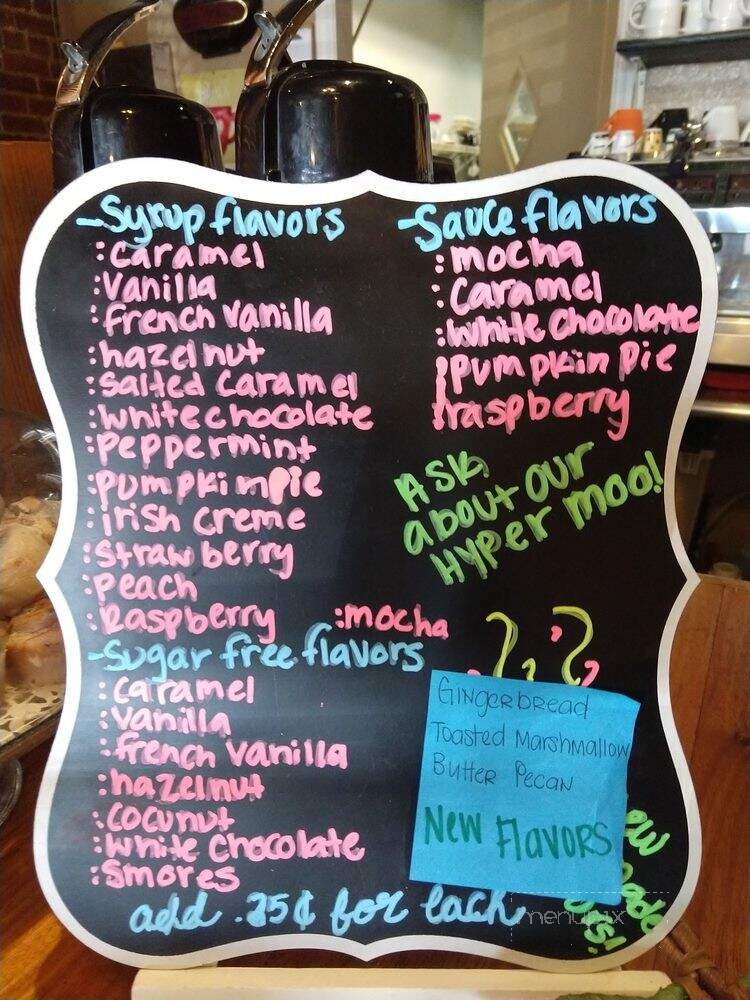 -Syrup flavors
:Caramel
:Vanilla
:french vanilla
:hazelnut
:Salted Caramel
:White chocolate
:Peppermint
:pumpkin Pie
:irish creme
:Strawberry
:Peach
:Raspberry :mocha
-Sugar free flavors
:Caramel
:Vanilla
:french vanilla
:hazelnut
:Coconut
:White Chocolate
:Smores
add .25¢ for each
-Sauce flavors
:mocha
:Caramel
:White Chocolate
:Pumpkin Pie
:raspberry
ASK
about our
Hyper Moo!
Gingerbread
Toasted Marshmallow
Butter Pecan
New Flavors
menupix